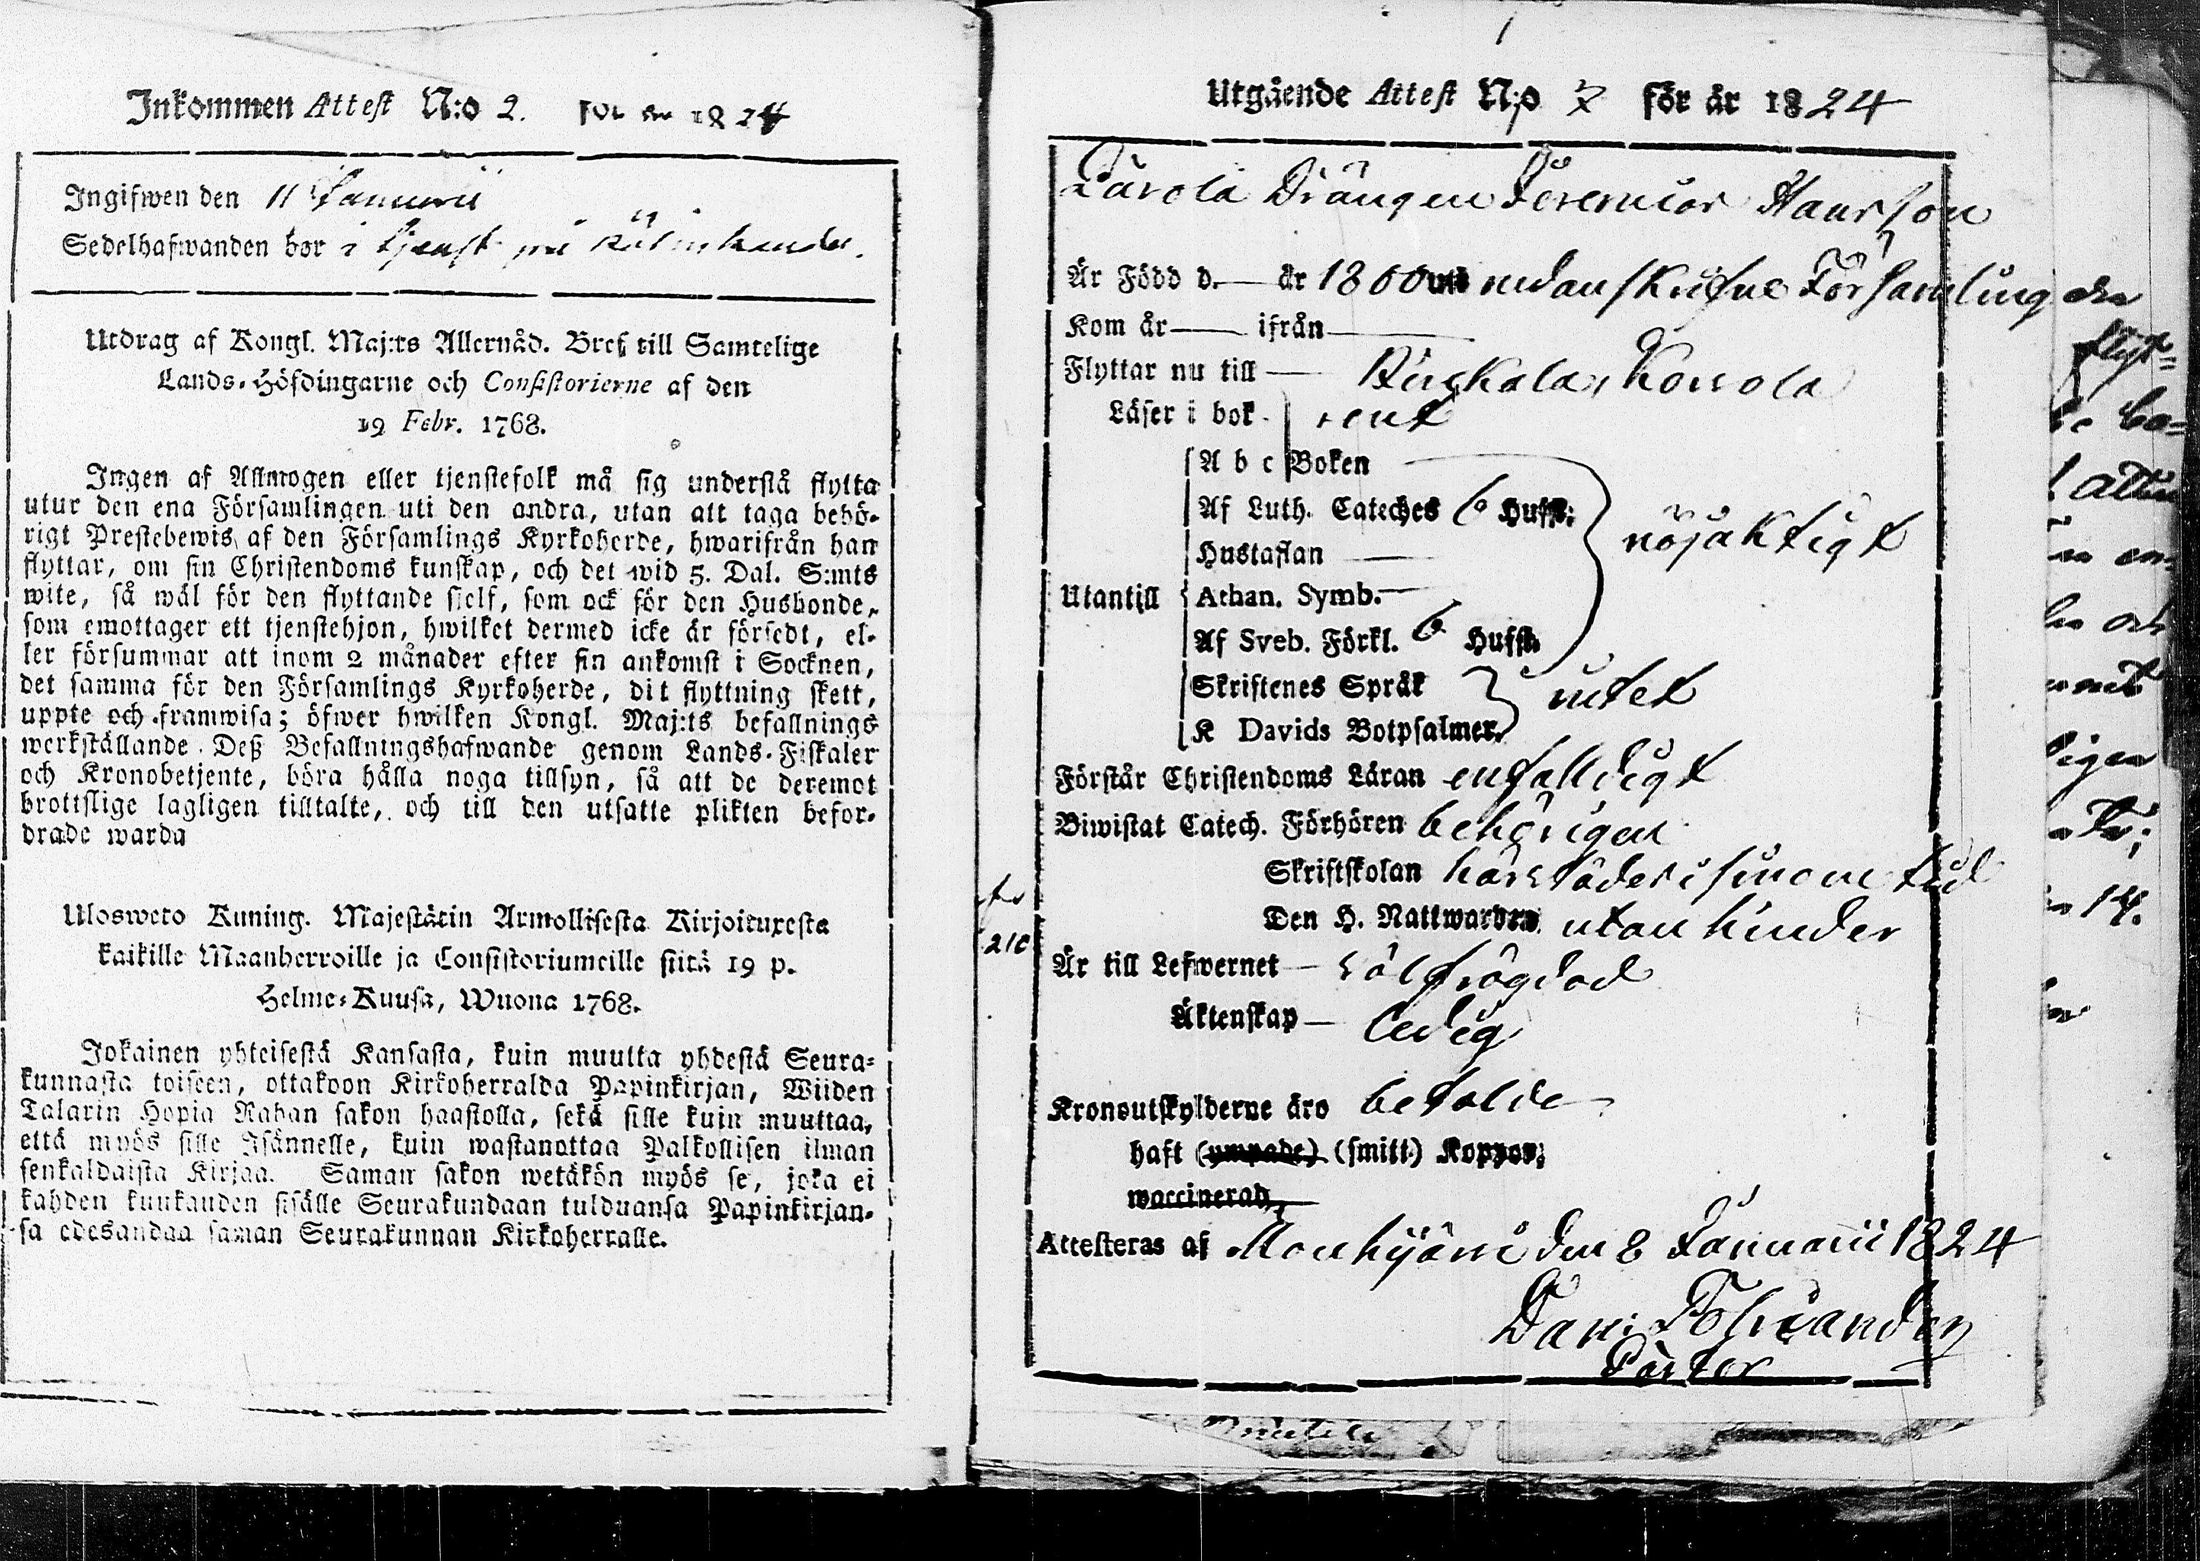 Inkommen Attest N:o 2. för år 1824
Ingifwen den 11 Januarii
Sedelhafwanden bor i tjenst på
Utdrag af Kongl. Maj:ts Allernåd. Bref till Samtelige
Lands-Höfdingarne och Consistorierne af den
19 Febr. 1768.
Ingen af Allmogen eller tjenstefolk må sig understå flytta
utur den ena Församlingen uti den andra, utan att taga behö-
rigt Prestebewis af den Församlings Kyrkoherde, hwarifrån han
flyttar, om sin Christendoms kunskap, och det wid 5. Dal. S:mts
wite, så wäl för den flyttande sielf, som ock för den Husbonde,
som emottager ett tjenstehjon, hwilket dermed icke är försedt, el-
ler försummar att inom 2 månader efter sin ankomst i Socknen,
det samma för den Församlings Kyrkoherde, dit flyttning skett,
uppte och framwisa; öfwer hwilken Kongl. Maj:ts befallnings
werkställande Deß Befallningshafwande genom Lands-Fiskaler
och Kronobetjente, böra hålla noga tillsyn, så att de deremot
brottslige lagligen tilltalte, och till den utsatte plikten befor-
drade warda
Ulosweto Kuning. Majestätin Armollisesta Kirjoituxesta
kaikille Maanherroille ja Consistoriumeille siitä 19 p.
Helme-Kuusa, Wuona 1768.
Jokainen yhteisestä Kansasta, kuin muutta yhdestä Seura-
kunnasta toiseen, ottakoon Kirkoherralda Papinkirjan, Wiiden
Talarin Hopia Rahan sakon haastolla, sekä sille kuin muuttaa,
että myös sille Isännelle, kuin wastanottaa Palkollisen ilman
senkaldaista Kirjaa. Saman sakon wetäkön myös se, joka ei
kahden kuukauden sisälle Seurakundaan tulduansa Papinkirjan-
sa edesandaa saman Seurakunnan Kirkoherralle.
Utgående Attest N:o för år 1824
Drängen Jeremias Hansson
Är Född d. — år 1800 uti nedanskrifne Församling
Kom år — ifrån —
Flyttar nu till — Birkala,
Läser i bok rent
A b c Boken
Af Luth. Cateches 6 Hufst. nöjaktigt
Hustaflan —
Utantill Athan. Symb. —
Af Sveb. Förkl. 6 Hufst.
Skriftenes Språk intet
K Davids Botpsalmer.
Förstår Christendoms Läran enfalldigt
Biwistat Catech. Förhören behörigen
Skriftskolan härstädes i sinom tid
Den H. Nattwarden utan hinder
Är till Lefwernet — välfrägdad
Äktenskap — ledig
Kronoutskylderne äro betalde
haft (ympade) (smitt.) Koppor;
waccinerad,
Attesteras af Mouhijärvi den 8 Januarii 1824
Pastor